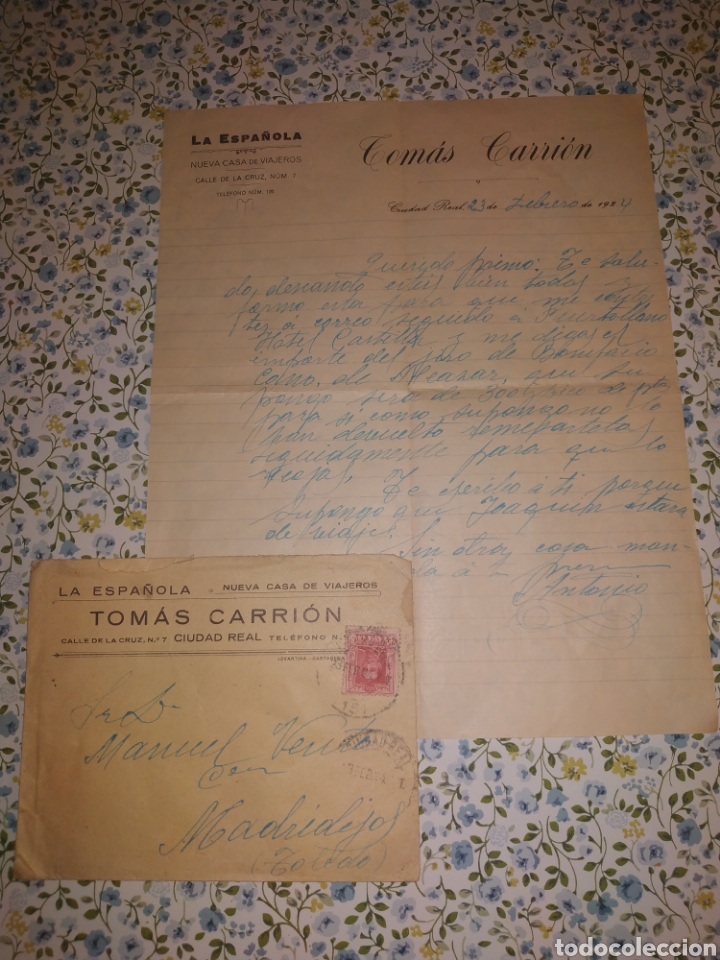 LA ESPAÑOLA
NUEVA CASA DE VIAJEROS
CALLE DE LA CRUZ, NÚM. 7
TELÉFONO NÚM. 136
Tomás Carrión
Ciudad Real 23 de Febrero de 1924
Querido primo: Te salu-
do, deseando esteis bien todos y
formo esta para que me contes
tes a correo seguido á Puertollano
Hotel Castilla y me digas el
importe del giro de Bonifacio
de Alcazar, que su
pongo será de 300 ptas
para si como supongo no lo
han devuelto
seguidamente para que lo
recojas.
Te escribo á ti porque
supongo que Joaquin estara
de viaje.
Sin otra cosa man-
da á tu
Antonio
LA ESPAÑOLA NUEVA CASA DE VIAJEROS
TOMÁS CARRIÓN
CALLE DE LA CRUZ, N.º 7 CIUDAD REAL TELÉFONO N.
LEVANTINA.-CARTAGENA
Sr. D.
Manuel
Madridejos
(Toledo)
CIUDAD-REAL
todocoleccion